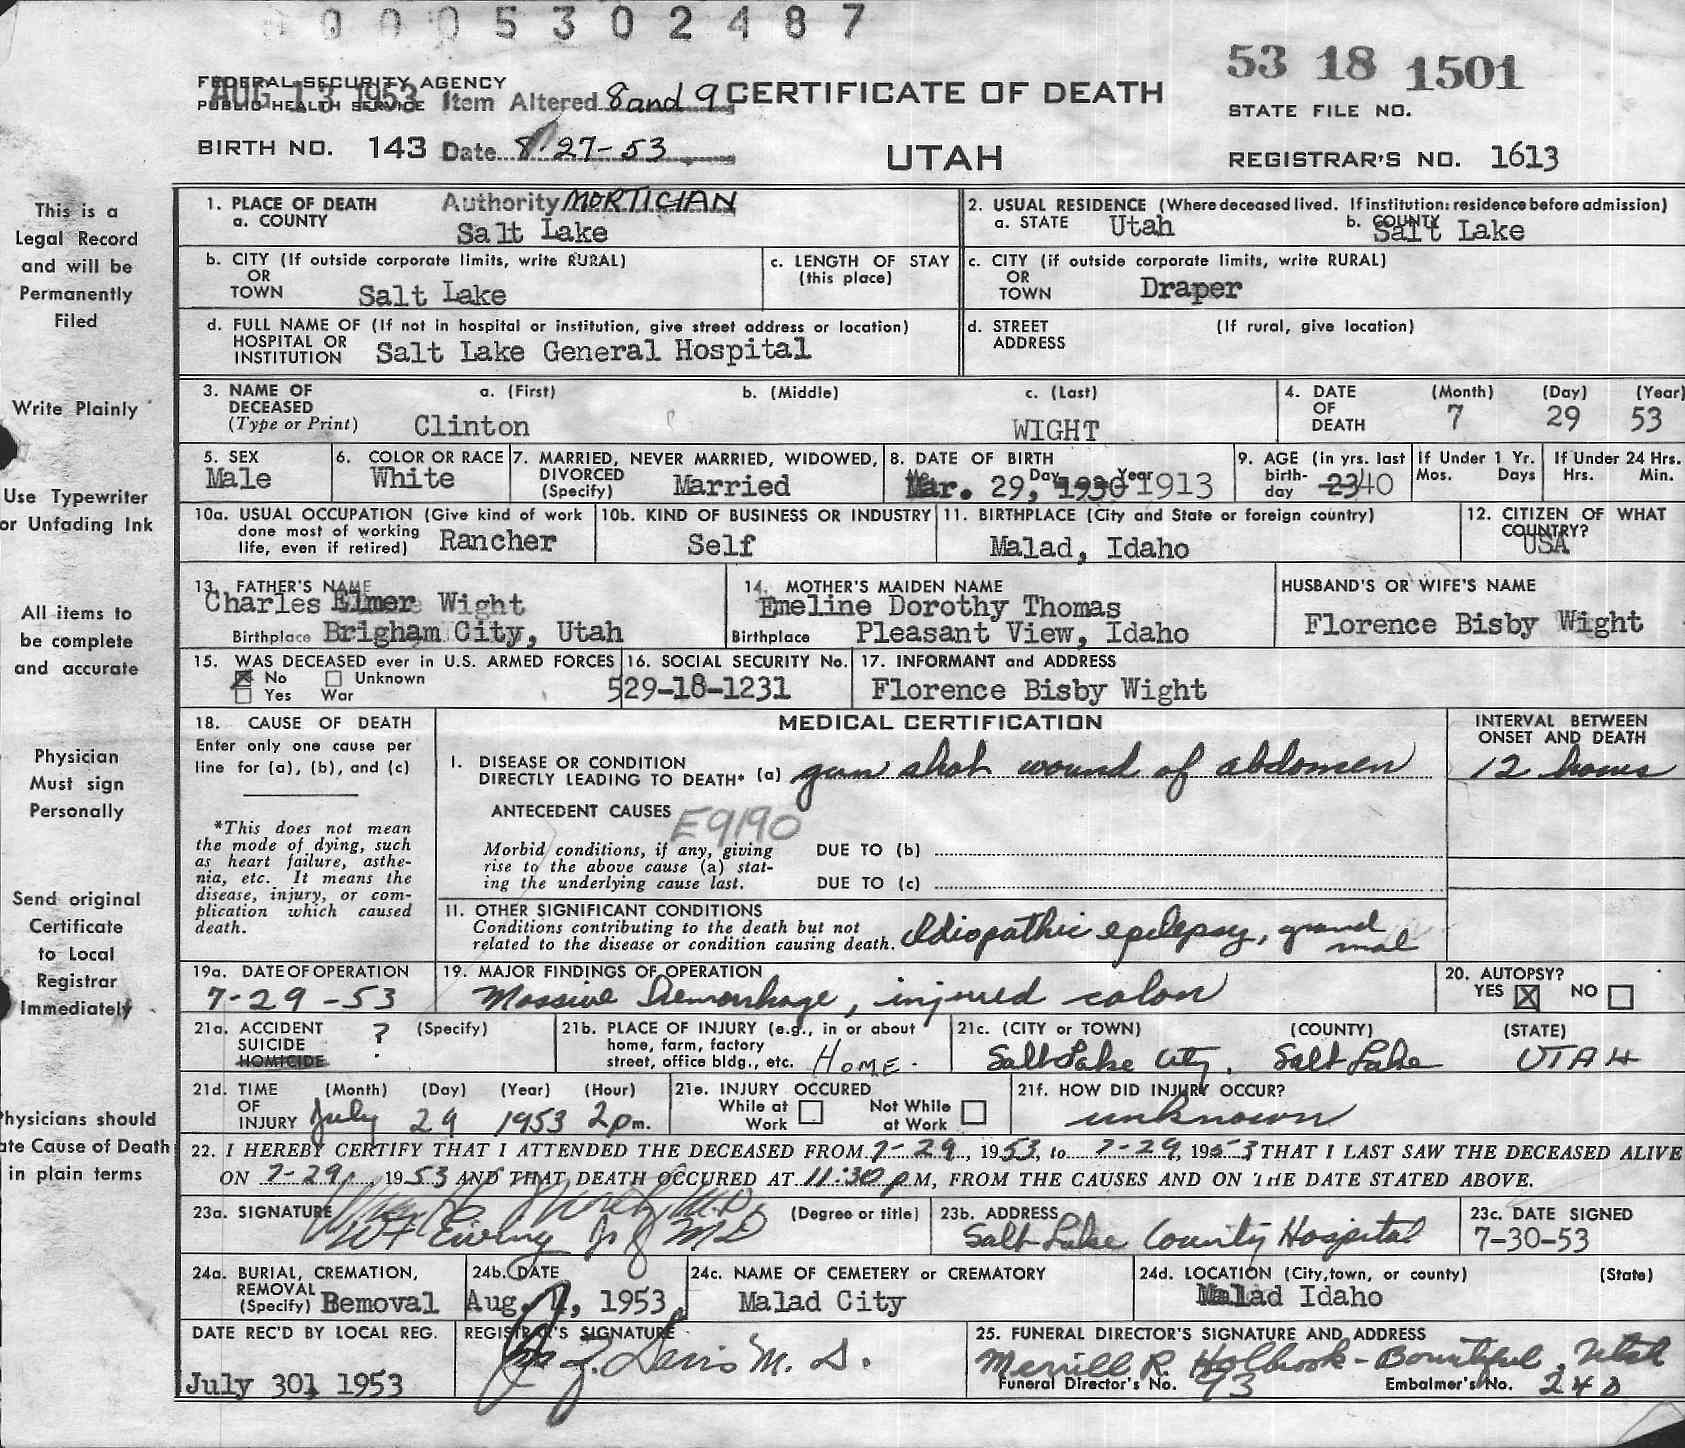 0 0 0 5 3 0 2 4 8 7
53 18 1501
FEDERAL SECURITY AGENCY
PUBLIC HEALTH SERVICE
AUG 13 1953
Item Altered 8 and 9
CERTIFICATE OF DEATH
STATE FILE NO.
BIRTH NO. 143
Date 8-27-53
UTAH
REGISTRAR'S NO. 1613
This is a
Legal Record
and will be
Permanently
Filed
Write Plainly
Use Typewriter
or Unfading Ink
All items to
be complete
and accurate
Physician
Must sign
Personally
Send original
Certificate
to Local
Registrar
Immediately
Physicians should
ate Cause of Death
in plain terms
1. PLACE OF DEATH
a. COUNTY
Authority MORTICIAN
Salt Lake
2. USUAL RESIDENCE (Where deceased lived. If institution: residence before admission)
a. STATE Utah
b. COUNTY Salt Lake
b. CITY (If outside corporate limits, write RURAL)
OR
TOWN Salt Lake
c. LENGTH OF STAY
(this place)
c. CITY (if outside corporate limits, write RURAL)
OR
TOWN Draper
d. FULL NAME OF (If not in hospital or institution, give street address or location)
HOSPITAL OR
INSTITUTION Salt Lake General Hospital
d. STREET (If rural, give location)
ADDRESS
3. NAME OF DECEASED
(Type or Print)
a. (First) b. (Middle) c. (Last)
Clinton WIGHT
4. DATE OF DEATH
(Month) (Day) (Year)
7 29 53
5. SEX
Male
6. COLOR OR RACE
White
7. MARRIED, NEVER MARRIED, WIDOWED,
DIVORCED
(Specify) Married
8. DATE OF BIRTH
Day Year
Mar. 29, 1930 1913
9. AGE (in yrs. last
birth-
day 23 40
If Under 1 Yr.
Mos. Days
If Under 24 Hrs.
Hrs. Min.
10a. USUAL OCCUPATION (Give kind of work
done most of working
life, even if retired) Rancher
10b. KIND OF BUSINESS OR INDUSTRY
Self
11. BIRTHPLACE (City and State or foreign country)
Malad, Idaho
12. CITIZEN OF WHAT
COUNTRY?
USA
13. FATHER'S NAME
Charles Elmer Wight
Birthplace Brigham City, Utah
14. MOTHER'S MAIDEN NAME
Emeline Dorothy Thomas
Birthplace Pleasant View, Idaho
HUSBAND'S OR WIFE'S NAME
Florence Bisby Wight
15. WAS DECEASED ever in U.S. ARMED FORCES
No Unknown
Yes War
16. SOCIAL SECURITY No.
529-18-1231
17. INFORMANT and ADDRESS
Florence Bisby Wight
18. CAUSE OF DEATH
Enter only one cause per
line for (a), (b), and (c)
*This does not mean
the mode of dying, such
as heart failure, asthe-
nia, etc. It means the
disease, injury, or com-
plication which caused
death.
MEDICAL CERTIFICATION
INTERVAL BETWEEN
ONSET AND DEATH
I. DISEASE OR CONDITION
DIRECTLY LEADING TO DEATH* (a) gun shot wound of abdomen
12 hours
ANTECEDENT CAUSES
E9190
Morbid conditions, if any, giving
rise to the above cause (a) stat-
ing the underlying cause last.
DUE TO (b)
DUE TO (c)
11. OTHER SIGNIFICANT CONDITIONS
Conditions contributing to the death but not
related to the disease or condition causing death. Idiopathic epilepsy, grand
mal
19a. DATE OF OPERATION
7-29-53
19. MAJOR FINDINGS OF OPERATION
Massive Hemorrhage, injured colon
20. AUTOPSY?
YES NO
21a. ACCIDENT ? (Specify)
SUICIDE
HOMICIDE
21b. PLACE OF INJURY (e.g., in or about
home, farm, factory
street, office bldg., etc. HOME.
21c. (CITY or TOWN) (COUNTY) (STATE)
Salt Lake City, Salt Lake UTAH
21d. TIME (Month) (Day) (Year) (Hour)
OF
INJURY July 29 1953 2 pm.
21e. INJURY OCCURED
While at Work
Not While at Work
21f. HOW DID INJURY OCCUR?
unknown
22. I HEREBY CERTIFY THAT I ATTENDED THE DECEASED FROM 7-29, 1953, to 7-29, 1953 THAT I LAST SAW THE DECEASED ALIVE
ON 7-29, 1953 AND THAT DEATH OCCURED AT 11:30 PM, FROM THE CAUSES AND ON THE DATE STATED ABOVE.
23a. SIGNATURE (Degree or title)
Ewing Jr MD
23b. ADDRESS
Salt Lake County Hospital
23c. DATE SIGNED
7-30-53
24a. BURIAL, CREMATION,
REMOVAL
(Specify) Bemoval
24b. DATE
Aug. 1, 1953
24c. NAME OF CEMETERY or CREMATORY
Malad City
24d. LOCATION (City, town, or county) (State)
Malad Idaho
DATE REC'D BY LOCAL REG.
July 301 1953
REGISTRAR'S SIGNATURE
Davis M. D.
25. FUNERAL DIRECTOR'S SIGNATURE AND ADDRESS
Merrill R. Holbrook - Bountiful, Utah
Funeral Director's No. 93
Embalmer's No. 240